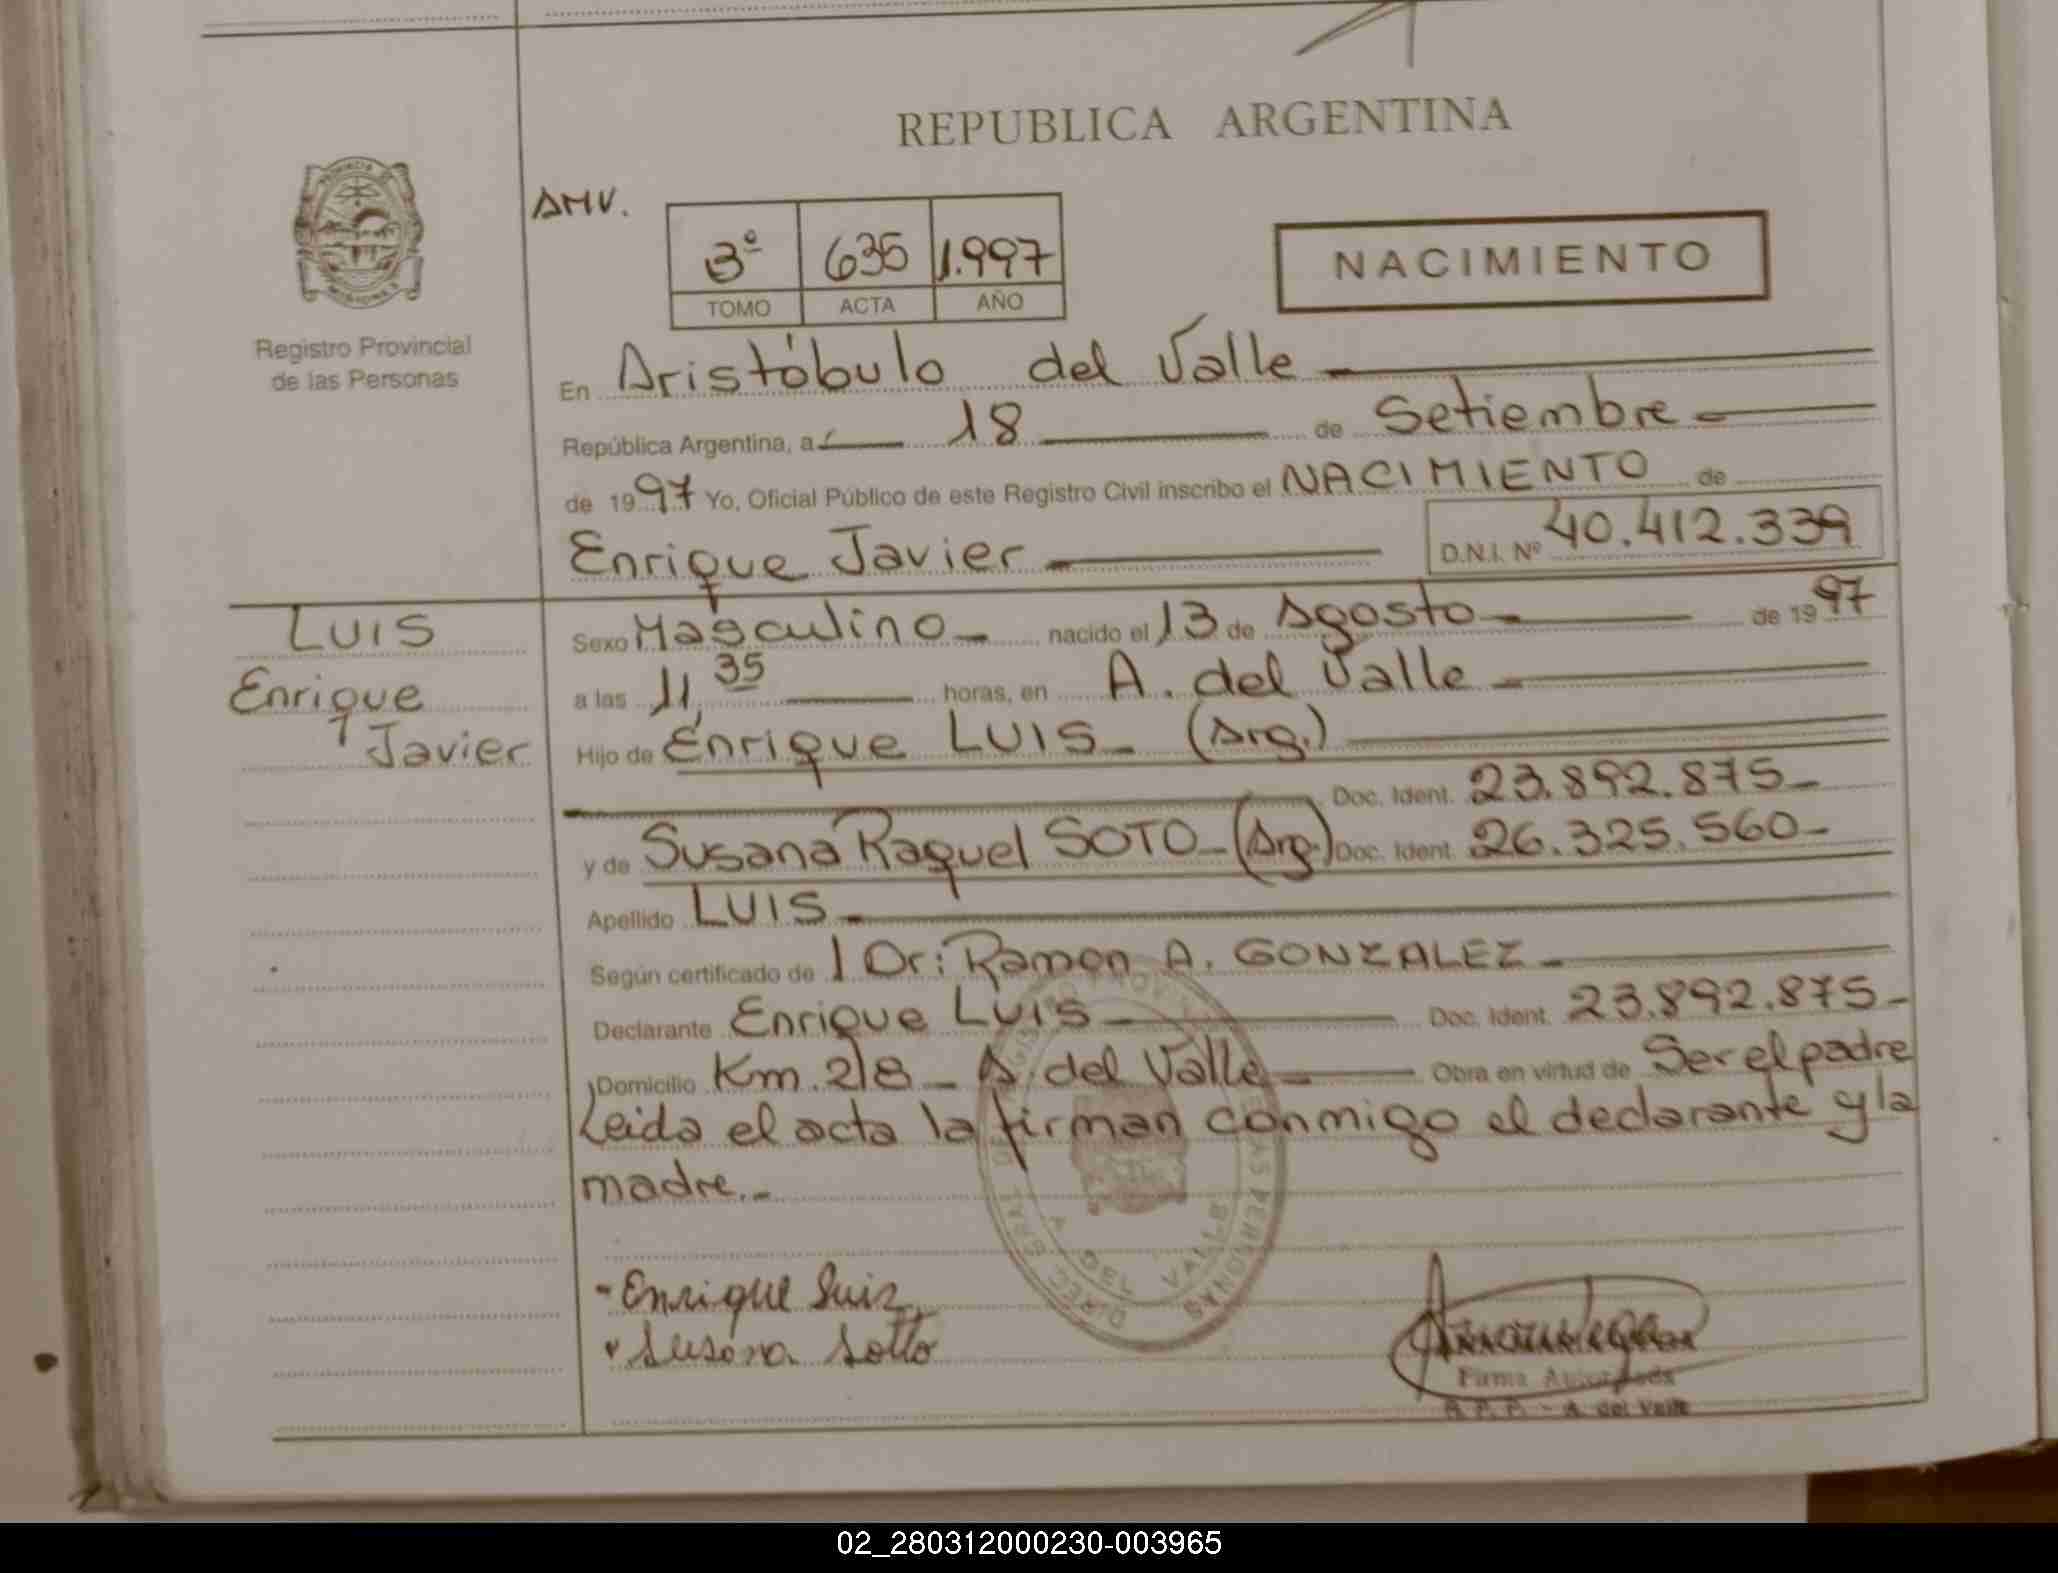 REPUBLICA ARGENTINA
AMV.
3º 635 1.997
TOMO ACTA AÑO
NACIMIENTO
Registro Provincial
de las Personas
En Aristóbulo del Valle
República Argentina, a 18 de Setiembre
de 1997 Yo, Oficial Público de este Registro Civil inscribo el NACIMIENTO de
Enrique Javier D.N.I. Nº 40.412.339
LUIS
Enrique
Javier
Sexo Masculino nacido el 13 de Agosto de 1997
a las 11,35 horas, en A. del Valle
Hijo de Enrique LUIS (Arg.)
Doc. Ident. 23.892.875
y de Susana Raquel SOTO (Arg.) Doc. Ident. 26.325.560
Apellido LUIS
Según certificado de 1 Dr: Ramon A. GONZALEZ
Declarante Enrique LUIS Doc. Ident. 23.892.875
Domicilio Km. 218 - A. del Valle Obra en virtud de Ser el padre
Leida el acta la firman conmigo el declarante y la
madre.
Enrique Luis
Susana Sotto
DEL VALLE
Firma Autorizada
R. P. P. - A. del Valle
02_280312000230-003965